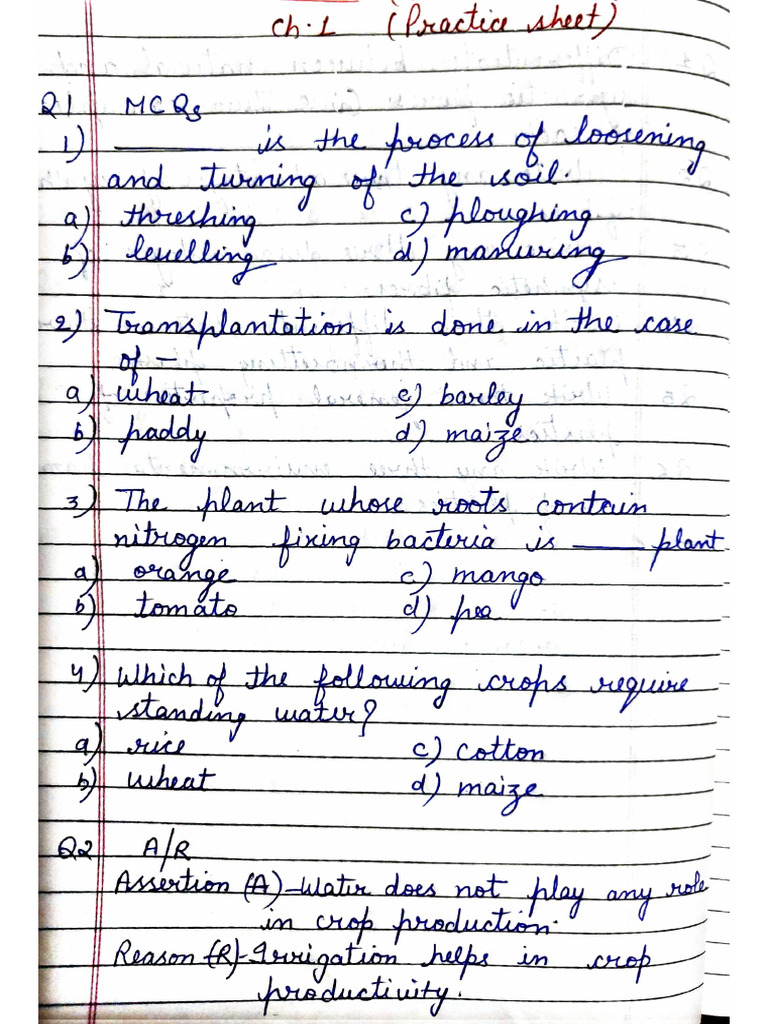 Ch.1 (Practice sheet)
Q1 MCQs
1) ______ is the process of loosening
and turning of the soil.
a) threshing c) ploughing
b) levelling d) manuring
2) Transplantation is done in the case
of -
a) wheat c) barley
b) paddy d) maize
3) The plant whose roots contain
nitrogen fixing bacteria is ____ plant
a) orange c) mango
b) tomato d) pea
4) Which of the following crops require
standing water?
a) rice c) cotton
b) wheat d) maize
Q2 A/R
Assertion (A) - Water does not play any role
in crop production.
Reason (R) - Irrigation helps in crop
productivity.